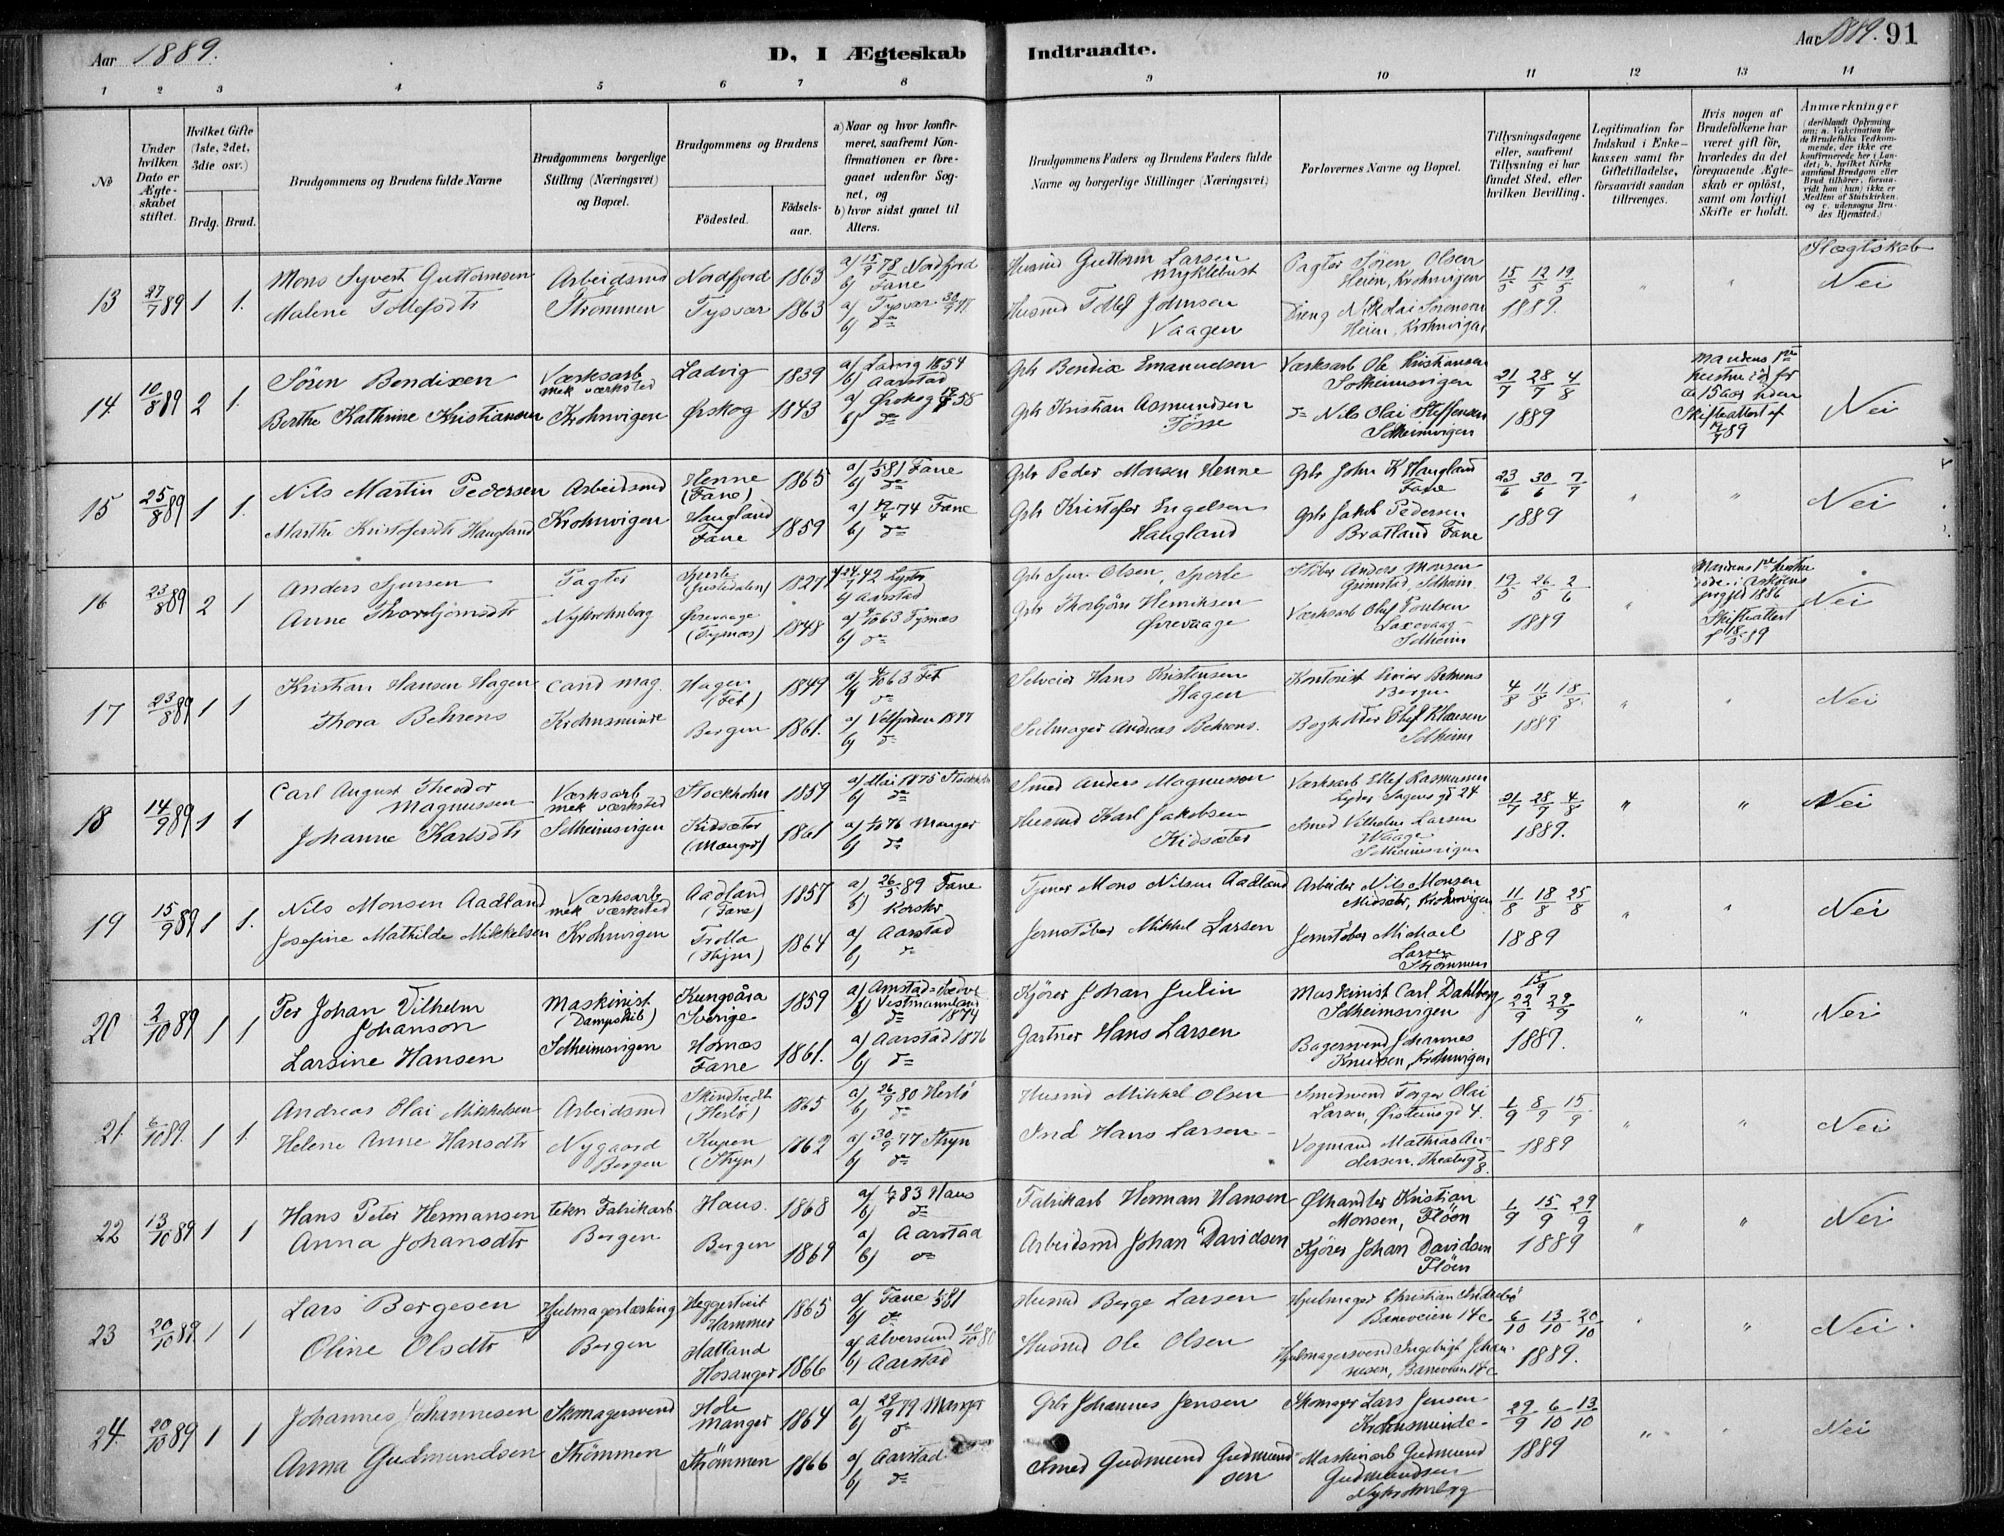 Aar 1889.
D, I Ægteskab Indtraadte.
Aar 1889. 91
1 2 3 4 5 6 7 8 9 10 11 12 13 14
No
Under hvilken Dato er Ægteskabet stiftet.
Hvilket Gifte (1ste, 2det, 3die osv.)
Brdg. Brud.
Brudgommens og Brudens fulde Navne
Brudgommens borgerlige Stilling (Næringsvei) og Bopæl.
Brudgommens og Brudens
Fødested.
Fødsels-aar.
a) Naar og hvor konfirmeret, saafremt Konfirmationen er foregaaet udenfor Sognet, og
b) hvor sidst gaaet til Alters.
Brudgommens Faders og Brudens Faders fulde Navne og borgerlige Stillinger (Næringsvei)
Forlovernes Navne og Bopæl.
Tillysningsdagene eller, saafremt Tillysning ei har fundet Sted, efter hvilken Bevilling.
Legitimation for Indskud i Enkekassen samt for Giftetilladelse, forsaavidt saadan tiltrænges.
Hvis nogen af Brudefolkene har været gift før, hvorledes da det foregaaende Ægteskab er opløst, samt om lovligt Skifte er holdt.
Anmærkninger (deriblandt Oplysning om: a. Vakcination for de Brudefolks Vedkommende, der ikke ere konfirmerede her i Landet; b. hvilket Kirkesamfund Brudgom eller Brud tilhører, forsaavidt han (hun) ikke er Medlem af Statskirken, og c. udensogns Brudes Hjemsted.)
Slægtskab
13 27/7 89 1 1. Mons Syvert Guttormsen Arbeidsmd Nordfjord 1863 a) 15/9 78 Nordfjord b) Fane Husmd Guttorm Larsen Myklebust Pagter Søren Olsen Heien, Krohnvigen 15/5 12/5 19/5 1889. " " Nei
Malene Tollefsdtr Strømmen Tysvær 1863 a) Tysvær b) do Husmd Tollef Johnsen Vaagen Dreng Nikolai Sørensen Heien, Krohnvigen
14. 10/8 89 2 1. Søren Bendixen Værksarb mek værksted Ladvig 1839 a) Ladvig 1854 b) Aarstad Gbr Bendix Emanuelsen Værksarb Ole Kristiansen Solheimsvigen 21/7 28/7 4/8 1889 Mandens 1ste Hustru død for ca 15 aar siden Skifteattest af 19/7 89 Nei
Berthe Kathrine Kristiansen Krohnvigen Ørskog 1843 a) Ørskog 58 b) do Gbr Kristian Asmundsen Fösse do Nils Olai Steffensen Solheimvigen
15 25/8 89 1 1. Nils Martin Pedersen Arbeidsmd Henne (Fane) 1865 a) 81 Fane b) do Gbr Peder Monsen Henne Gbr John K Haugland Fane 23/6 30/6 7/7 1889 " " Nei
Marthe Kristofersdtr Haugland Krohnvigen Haugland Fane 1859 a) 74 Fane b) do Gbr Kristofer Engelsen Haugland Gbr Jakob Pedersen Bratland Fane
16 23/8 89 2 1 Anders Sjursen Pagter Sperle (Justedalen) 1827 42 Lyster b) Aarstad Gbr Sjur Olsen, Sperle Støber Anders Monsen Grimstad, Solheim 19/5 26/5 2/6 1889 " Mandens 1ste hustru døde i Askøens prgjld 1886 Skifteattest 89 Nei
Anne Thorbjørnsdtr Nykrohnborg Øvrevaage (Tysnæs) 1848 a) 63 Tysnæs b) do Gbr Thorbjørn Henriksen Øvrevaage Værksarb Olaf Poulsen Laxevaag Solheim
17 23/8 89 1 1 Kristian Hansen Hagen cand mag. Hagen (Fet) 1849 a) 63 Fet b) do Selveier Hans Kristensen Hagen Kontorist Behrens Bergen 4/8 11/8 18/8. 1889 " " Nei
Thora Behrens Krohnsminde Bergen 1861. a) Velfjorden 1877 b) do Seilmager Andreas Behrens. Bogholder Olaf Klausen Solheim
18 14/9 89 1 1 Carl August Theodor Magnussen Værksarb mek værksted Stockholm 1859 a) Mai 1875 Stockholm b) do Smed Anders Magnusson Værksarb Ellef Rasmussen Lyder Sagens gd 24 21/7 28/9 4/8 1889. " " Nei
Johanne Karlsdtr Solheimsvigen Kidsæter (Manger) 1861 a) 76 Manger b) do Husmd Karl Jakobsen Kidsæter Smed Vilhelm Larsen Waage Solheimsvigen
19 15/9 89 1 1. Nils Monsen Aadland Værksarb mek værksted Aadland (Fane) 1857 a) 26/5 89 Fane b) Korskr Tjener Mons Nilsen Aadland Arbeider Nils Monsen Midsæter, Krohnvigen 11/8 18/8 25/8 1889 " " Nei
Josefine Mathilde Mikkelsen Krohnvigen Trolla (Thjm) 1864 a) Aarstad b) do Jernstøber Mikkel Larsen Jernstøber Michael Larsen Strömmen
20 2/10 89 1 1 Per Johan Vilhelm Johanson Maskinist (Dampskib) Kungsåra Sverige 1859 a) Vestmannland b) do 1874 Kjører Johan Julin Maskinist Carl Dahlberg Solheimsvigen 15/9 22/9 29/9 1889. " " Nei
Larsine Hansen Solheimsvigen Hornæs Fane 1861. a) Aarstad 1876 b) do Gartner Hans Larsen Bagersvend Johannes Knudsen, Krohnvigen
21. 6/10 89. 1 1. Andreas Olai Mikkelsen Arbeidsmd Skindtvedt (Herlö) 1865 a) 26/9 80 Herlö b) do Husmd Mikkel Olsen Smedsvend Torger Olai Larsen, Øisteinsgd 4. 1/9 8/9 15/9. 1889 " " Nei
Helene Anne Hansdtr Nygaard Bergen Kupen (Stryn) 1862 a) 30/9 77 Stryn b) do Ind Hans Larsen Vognmand Mathias Andersen. Theatergd 8.
22 13/10 89 1 1 Hans Peter Hermansen tekn Fabrikarb Haus. 1868 a) 83 Haus b) do Fabrikarb Herman Hansen Ølhandler Kristian Monsen, Flöen 1/9 15/9 29/9 1889 " " Nei
Anna Johansdtr Bergen Bergen 1869 a) Aarstad b) do Arbeidsmd Johan Davidsen Kjører Johan Davidsen Flöen
23 20/10 89. 1 1 Lars Bergesen Hjulmagerlærling Heggertveit Hammer 1865 a) Fane 81 b) do Husmd Berge Larsen Hjulmager Christian Indrebö Baneveien 14c 6/10 13/10 20/10 1889. " " Nei.
Oline Olsdtr Bergen Hatland Hosanger 1866 a) Alversund 10/10 80 b) Aarstad Husmd Ole Olsen Hjulmagersvend Ingebrigt Johannesen, Baneveien 14c
24. 20/10 89 1 1 Johannes Johannesen Skomagersvend Hole Manger 1864 a) 29/9 79 Manger b) do Gbr Johannes Jensen Skomager Lars Jensen Krohnsminde 29/9 6/10 13/10 1889 " " Nei
Anna Gudmundsen Strömmen Strömmen 1866 a) Aarstad b) do Smed Gudmund Gudmundsen Maskinarb Gudmund Gudmundsen Nykrohnborg